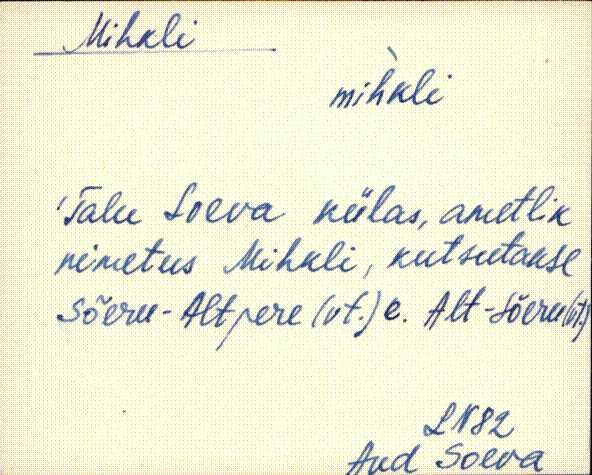 Mihkli
mìhkli
'Talu Soeva külas, ametlik
nimetus Mihkli, kutsutakse
Sõeru-Altpere (vt.) e. Alt-Sõeru (vt.)
LN 82
Aud Soeva